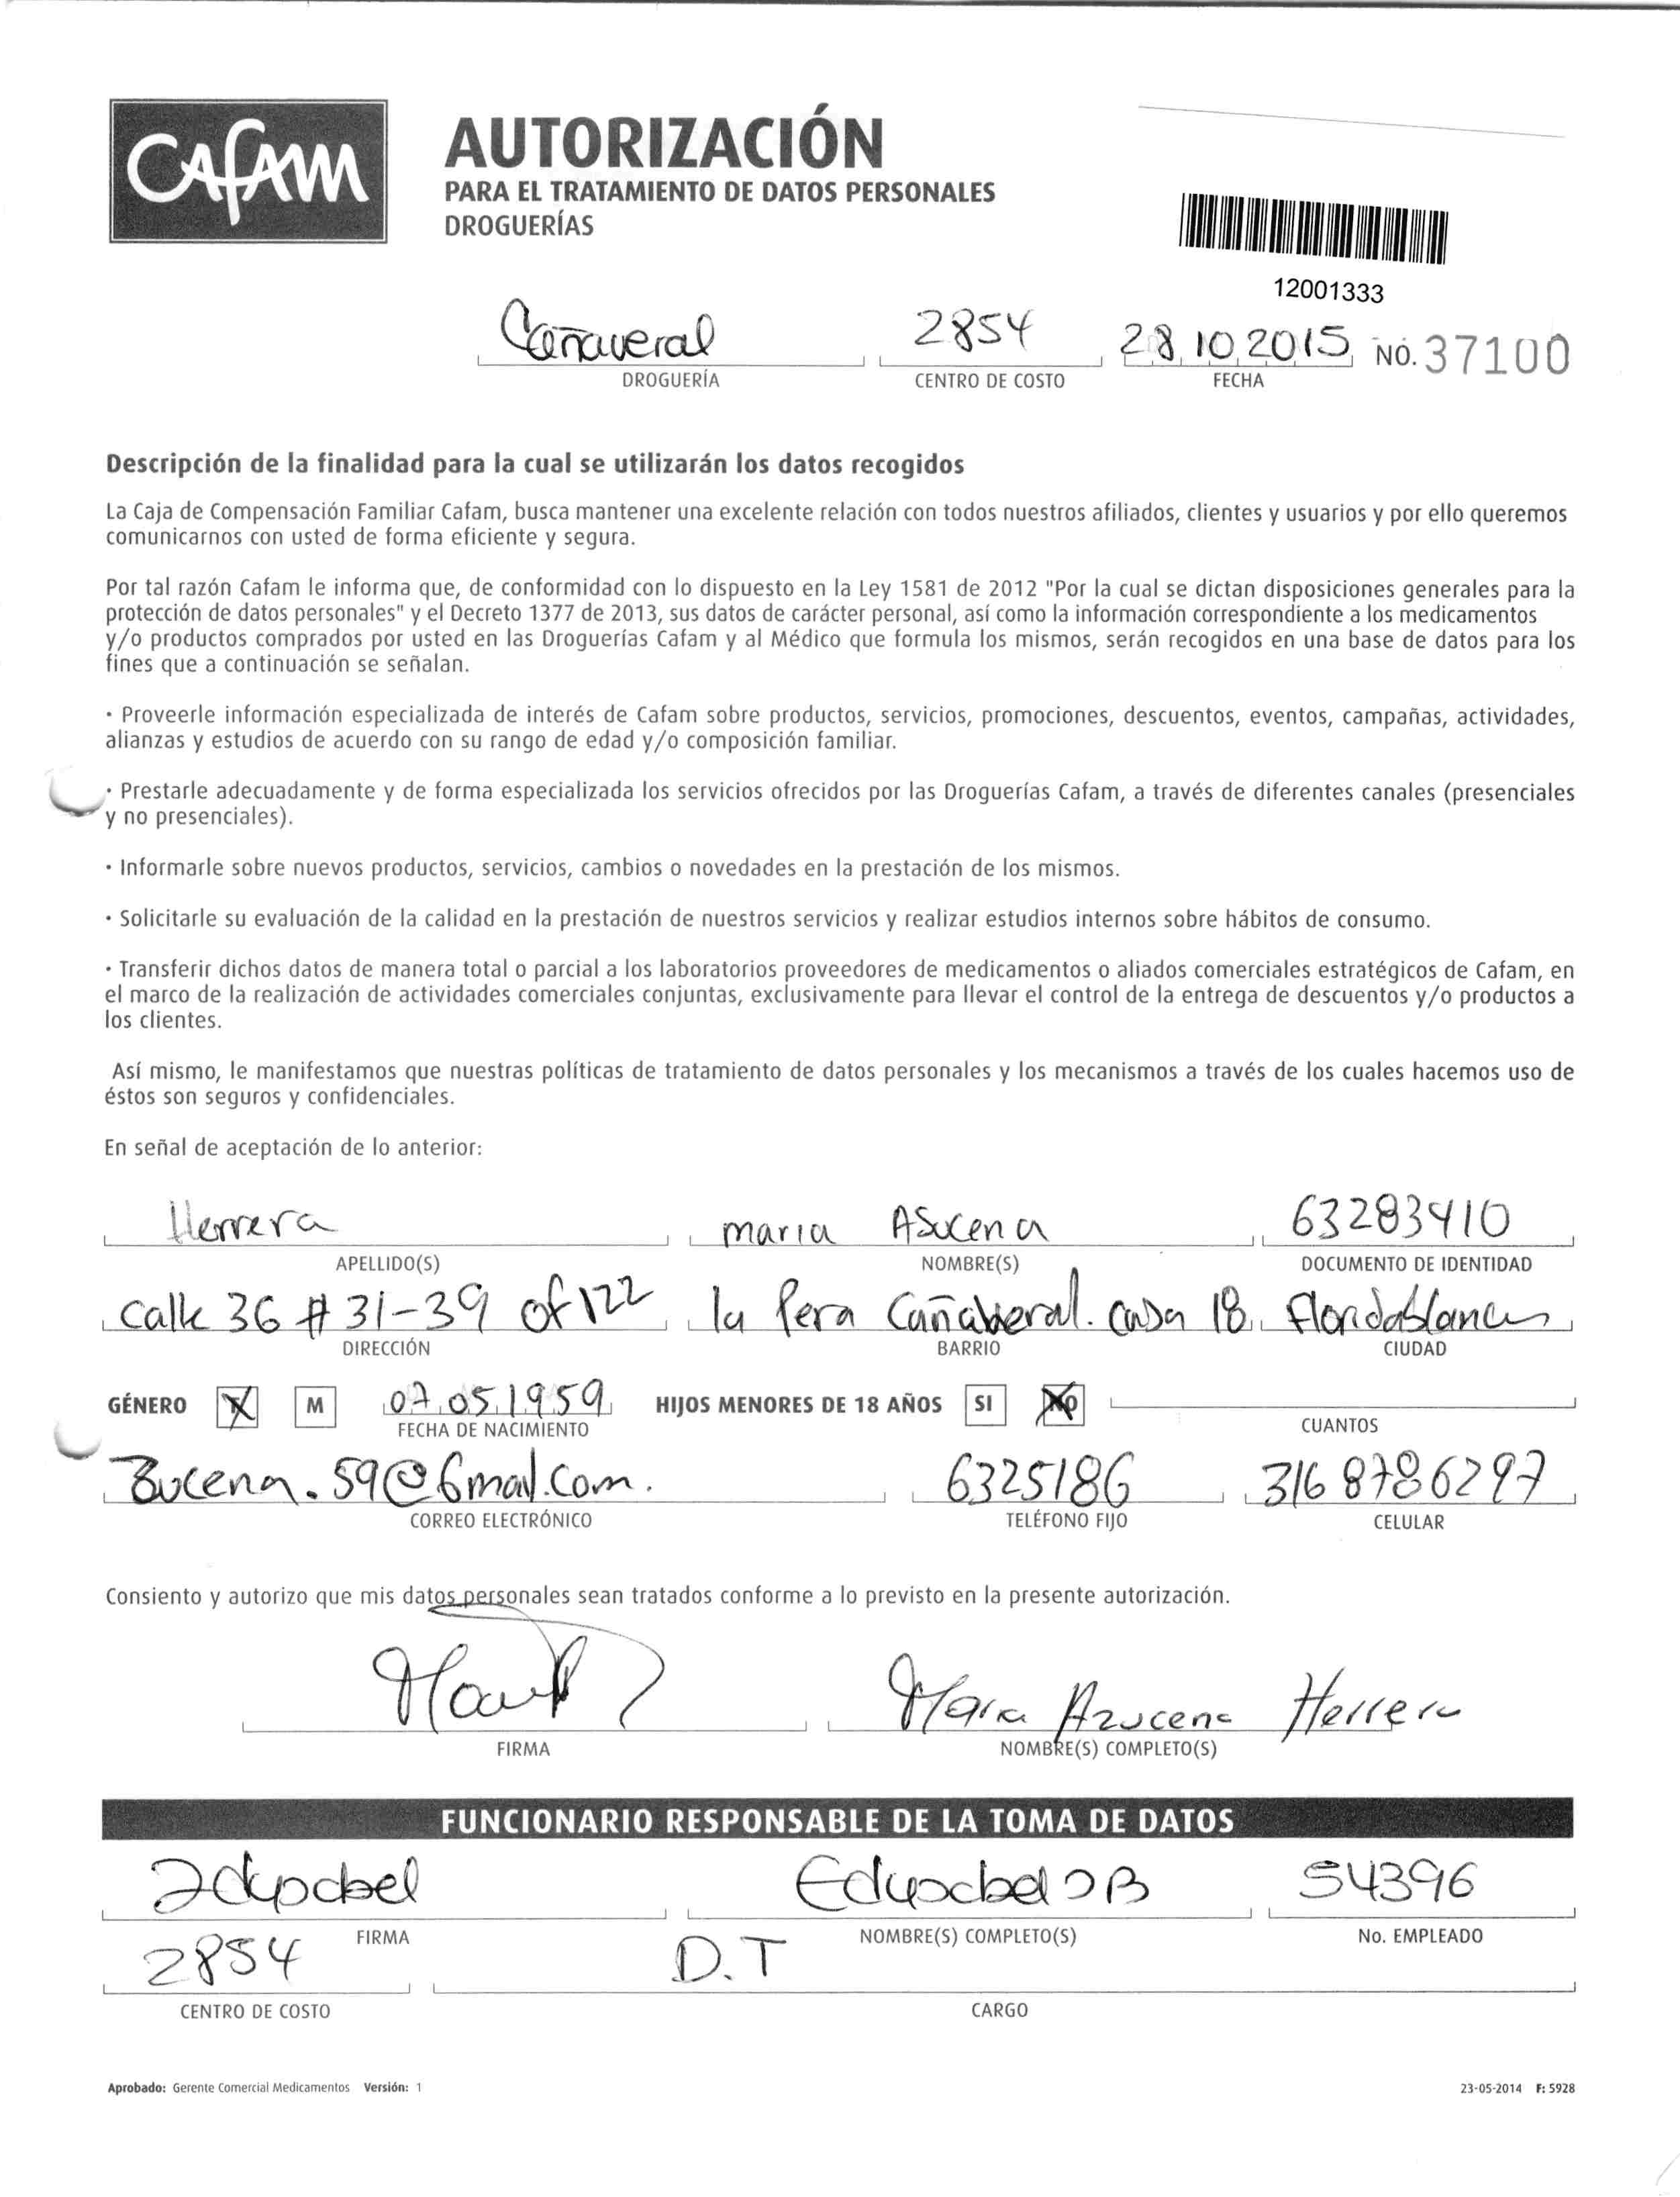 CAFAM
AUTORIZACIÓN
PARA EL TRATAMIENTO DE DATOS PERSONALES
DROGUERÍAS
12001333
Cañaveral 2854 28 10 2015 NO. 37100
DROGUERÍA CENTRO DE COSTO FECHA
Descripción de la finalidad para la cual se utilizarán los datos recogidos
La Caja de Compensación Familiar Cafam, busca mantener una excelente relación con todos nuestros afiliados, clientes y usuarios y por ello queremos
comunicarnos con usted de forma eficiente y segura.
Por tal razón Cafam le informa que, de conformidad con lo dispuesto en la Ley 1581 de 2012 "Por la cual se dictan disposiciones generales para la
protección de datos personales" y el Decreto 1377 de 2013, sus datos de carácter personal, así como la información correspondiente a los medicamentos
y/o productos comprados por usted en las Droguerías Cafam y al Médico que formula los mismos, serán recogidos en una base de datos para los
fines que a continuación se señalan.
• Proveerle información especializada de interés de Cafam sobre productos, servicios, promociones, descuentos, eventos, campañas, actividades,
alianzas y estudios de acuerdo con su rango de edad y/o composición familiar.
• Prestarle adecuadamente y de forma especializada los servicios ofrecidos por las Droguerías Cafam, a través de diferentes canales (presenciales
y no presenciales).
• Informarle sobre nuevos productos, servicios, cambios o novedades en la prestación de los mismos.
• Solicitarle su evaluación de la calidad en la prestación de nuestros servicios y realizar estudios internos sobre hábitos de consumo.
• Transferir dichos datos de manera total o parcial a los laboratorios proveedores de medicamentos o aliados comerciales estratégicos de Cafam, en
el marco de la realización de actividades comerciales conjuntas, exclusivamente para llevar el control de la entrega de descuentos y/o productos a
los clientes.
Así mismo, le manifestamos que nuestras políticas de tratamiento de datos personales y los mecanismos a través de los cuales hacemos uso de
éstos son seguros y confidenciales.
En señal de aceptación de lo anterior:
Herrera maria Asucena 63283410
APELLIDO(S) NOMBRE(S) DOCUMENTO DE IDENTIDAD
calle 36 # 31-39 of 122 la Pera Cañaveral. casa 18. Floridablanca
DIRECCIÓN BARRIO CIUDAD
GÉNERO M 07 05 1959 HIJOS MENORES DE 18 AÑOS SI NO
FECHA DE NACIMIENTO CUANTOS
59@Gmail.com. 6325186 316 8786297
CORREO ELECTRÓNICO TELÉFONO FIJO CELULAR
Consiento y autorizo que mis datos personales sean tratados conforme a lo previsto en la presente autorización.
Maria Azucena Herrera
FIRMA NOMBRE(S) COMPLETO(S)
FUNCIONARIO RESPONSABLE DE LA TOMA DE DATOS
54396
FIRMA NOMBRE(S) COMPLETO(S) No. EMPLEADO
2854 D.T
CENTRO DE COSTO CARGO
Aprobado: Gerente Comercial Medicamentos Versión: 1 23-05-2014 F: 5928